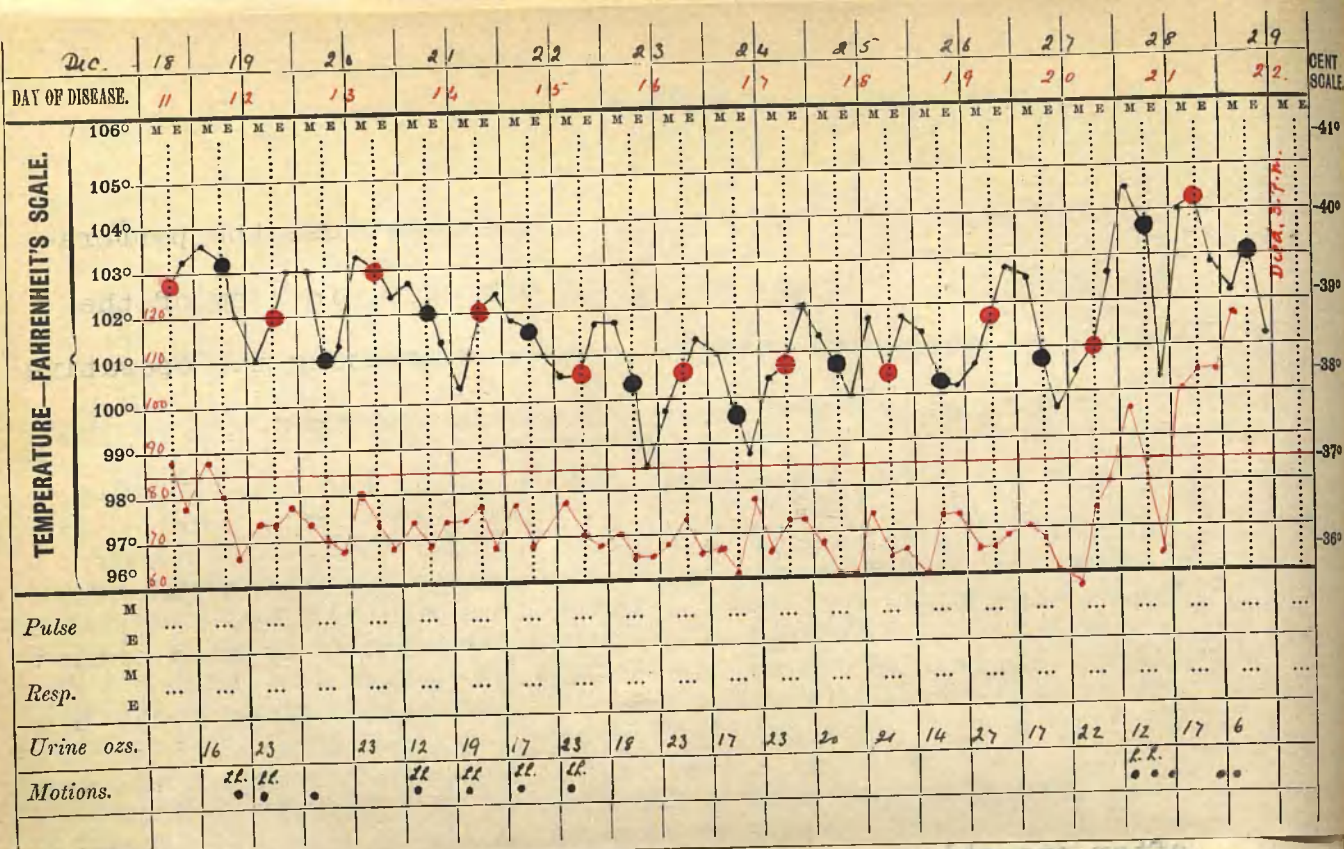 Dec. 18 19 20 21 22 23 24 25 26 27 28 29
CENT SCALE.
DAY OF DISEASE. 11 12 13 14 15 16 17 18 19 20 21 22.
M E M E M E M E M E M E M E M E M E M E M E M E M E M E M E M E M E M E M E M E M E M E M E
TEMPERATURE—FAHRENHEIT'S SCALE.
106°
105°
104°
103°
102° 120
101° 110
100° 100
99° 90
98° 80
97° 70
96° 60
-41°
-40°
-39°
-38°
-37°
-36°
Died. 3. P.m.
Pulse M E ... ... ... ... ... ... ... ... ... ... ... ... ... ... ... ... ... ... ... ... ... ... ...
Resp. M E ... ... ... ... ... ... ... ... ... ... ... ... ... ... ... ... ... ... ... ... ... ... ...
Urine ozs. 16 23 23 12 19 17 23 18 23 17 23 20 21 14 27 17 22 12 17 6
Motions.